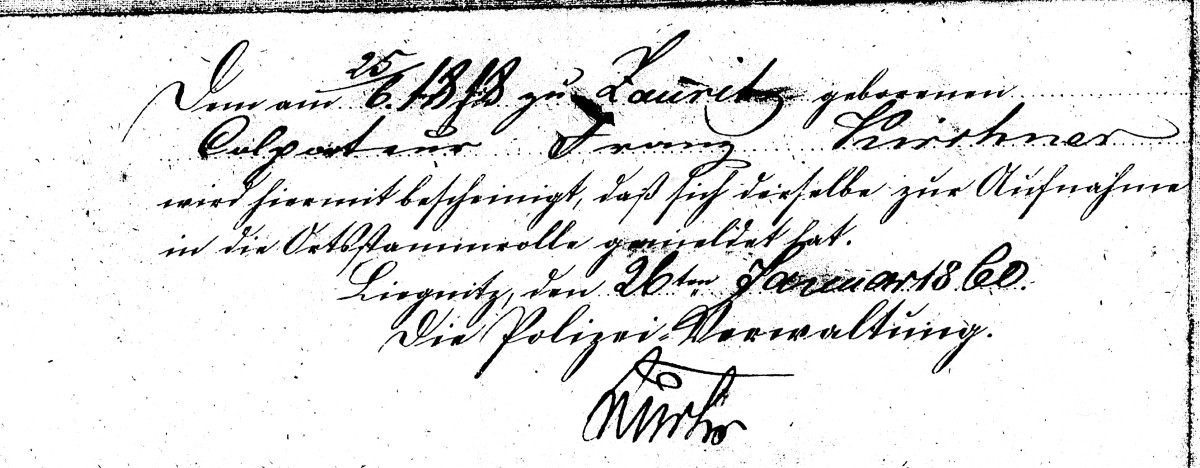 Dem am 25/6. 18 zu Zauritz geborenen
Colporteur Franz Kirchner
wird hiermit bescheinigt, daß sich derselbe zur Aufnahme
in die Ortsstammrolle gemeldet hat.
Liegnitz, den 26ten Januar 1860.
Die Polizei-Verwaltung.